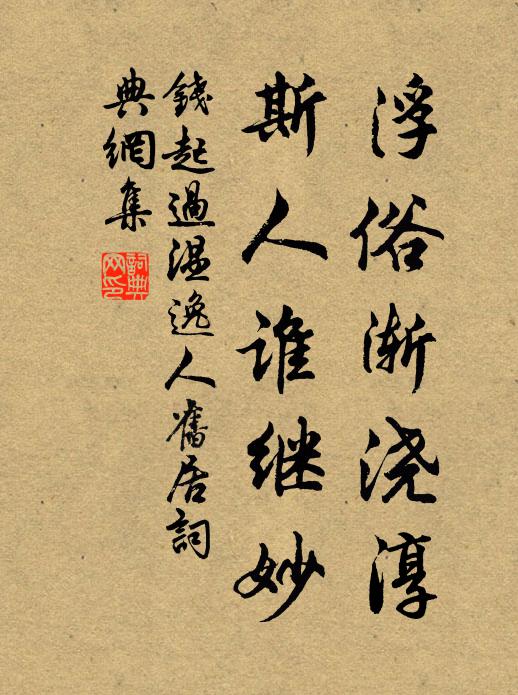 浮俗渐浇淳
斯人谁继妙
錢起過温逸人舊居詞
典網集
詞典
网印